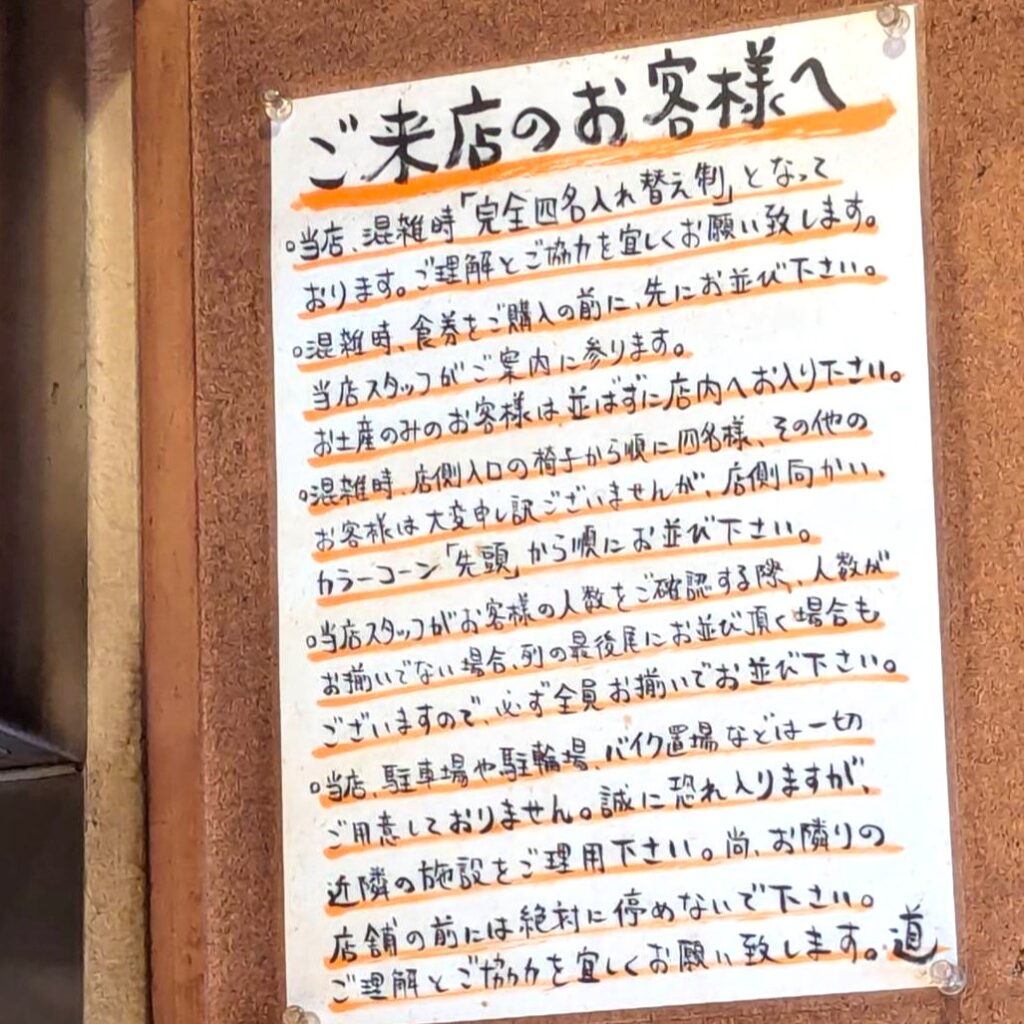 ご来店のお客様へ
○当店、混雑時「完全四名入れ替え制」となって
おります。ご理解とご協力を宜しくお願い致します。
○混雑時、食券をご購入の前に、先にお並び下さい。
当店スタッフがご案内に参ります。
お土産のみのお客様は並ばずに店内へお入り下さい。
○混雑時、店側入口の椅子から順に四名様、その他の
お客様は大変申し訳ございませんが、店側向かい、
カラーコーン「先頭」から順にお並び下さい。
○当店スタッフがお客様の人数をご確認する際、人数が
お揃いでない場合、列の最後尾にお並び頂く場合も
ございますので、必ず全員お揃いでお並び下さい。
○当店、駐車場や駐輪場、バイク置場などは一切
ご用意しておりません。誠に恐れ入りますが、
近隣の施設をご理用下さい。尚、お隣りの
店舗の前には絶対に停めないで下さい。
ご理解とご協力を宜しくお願い致します。道